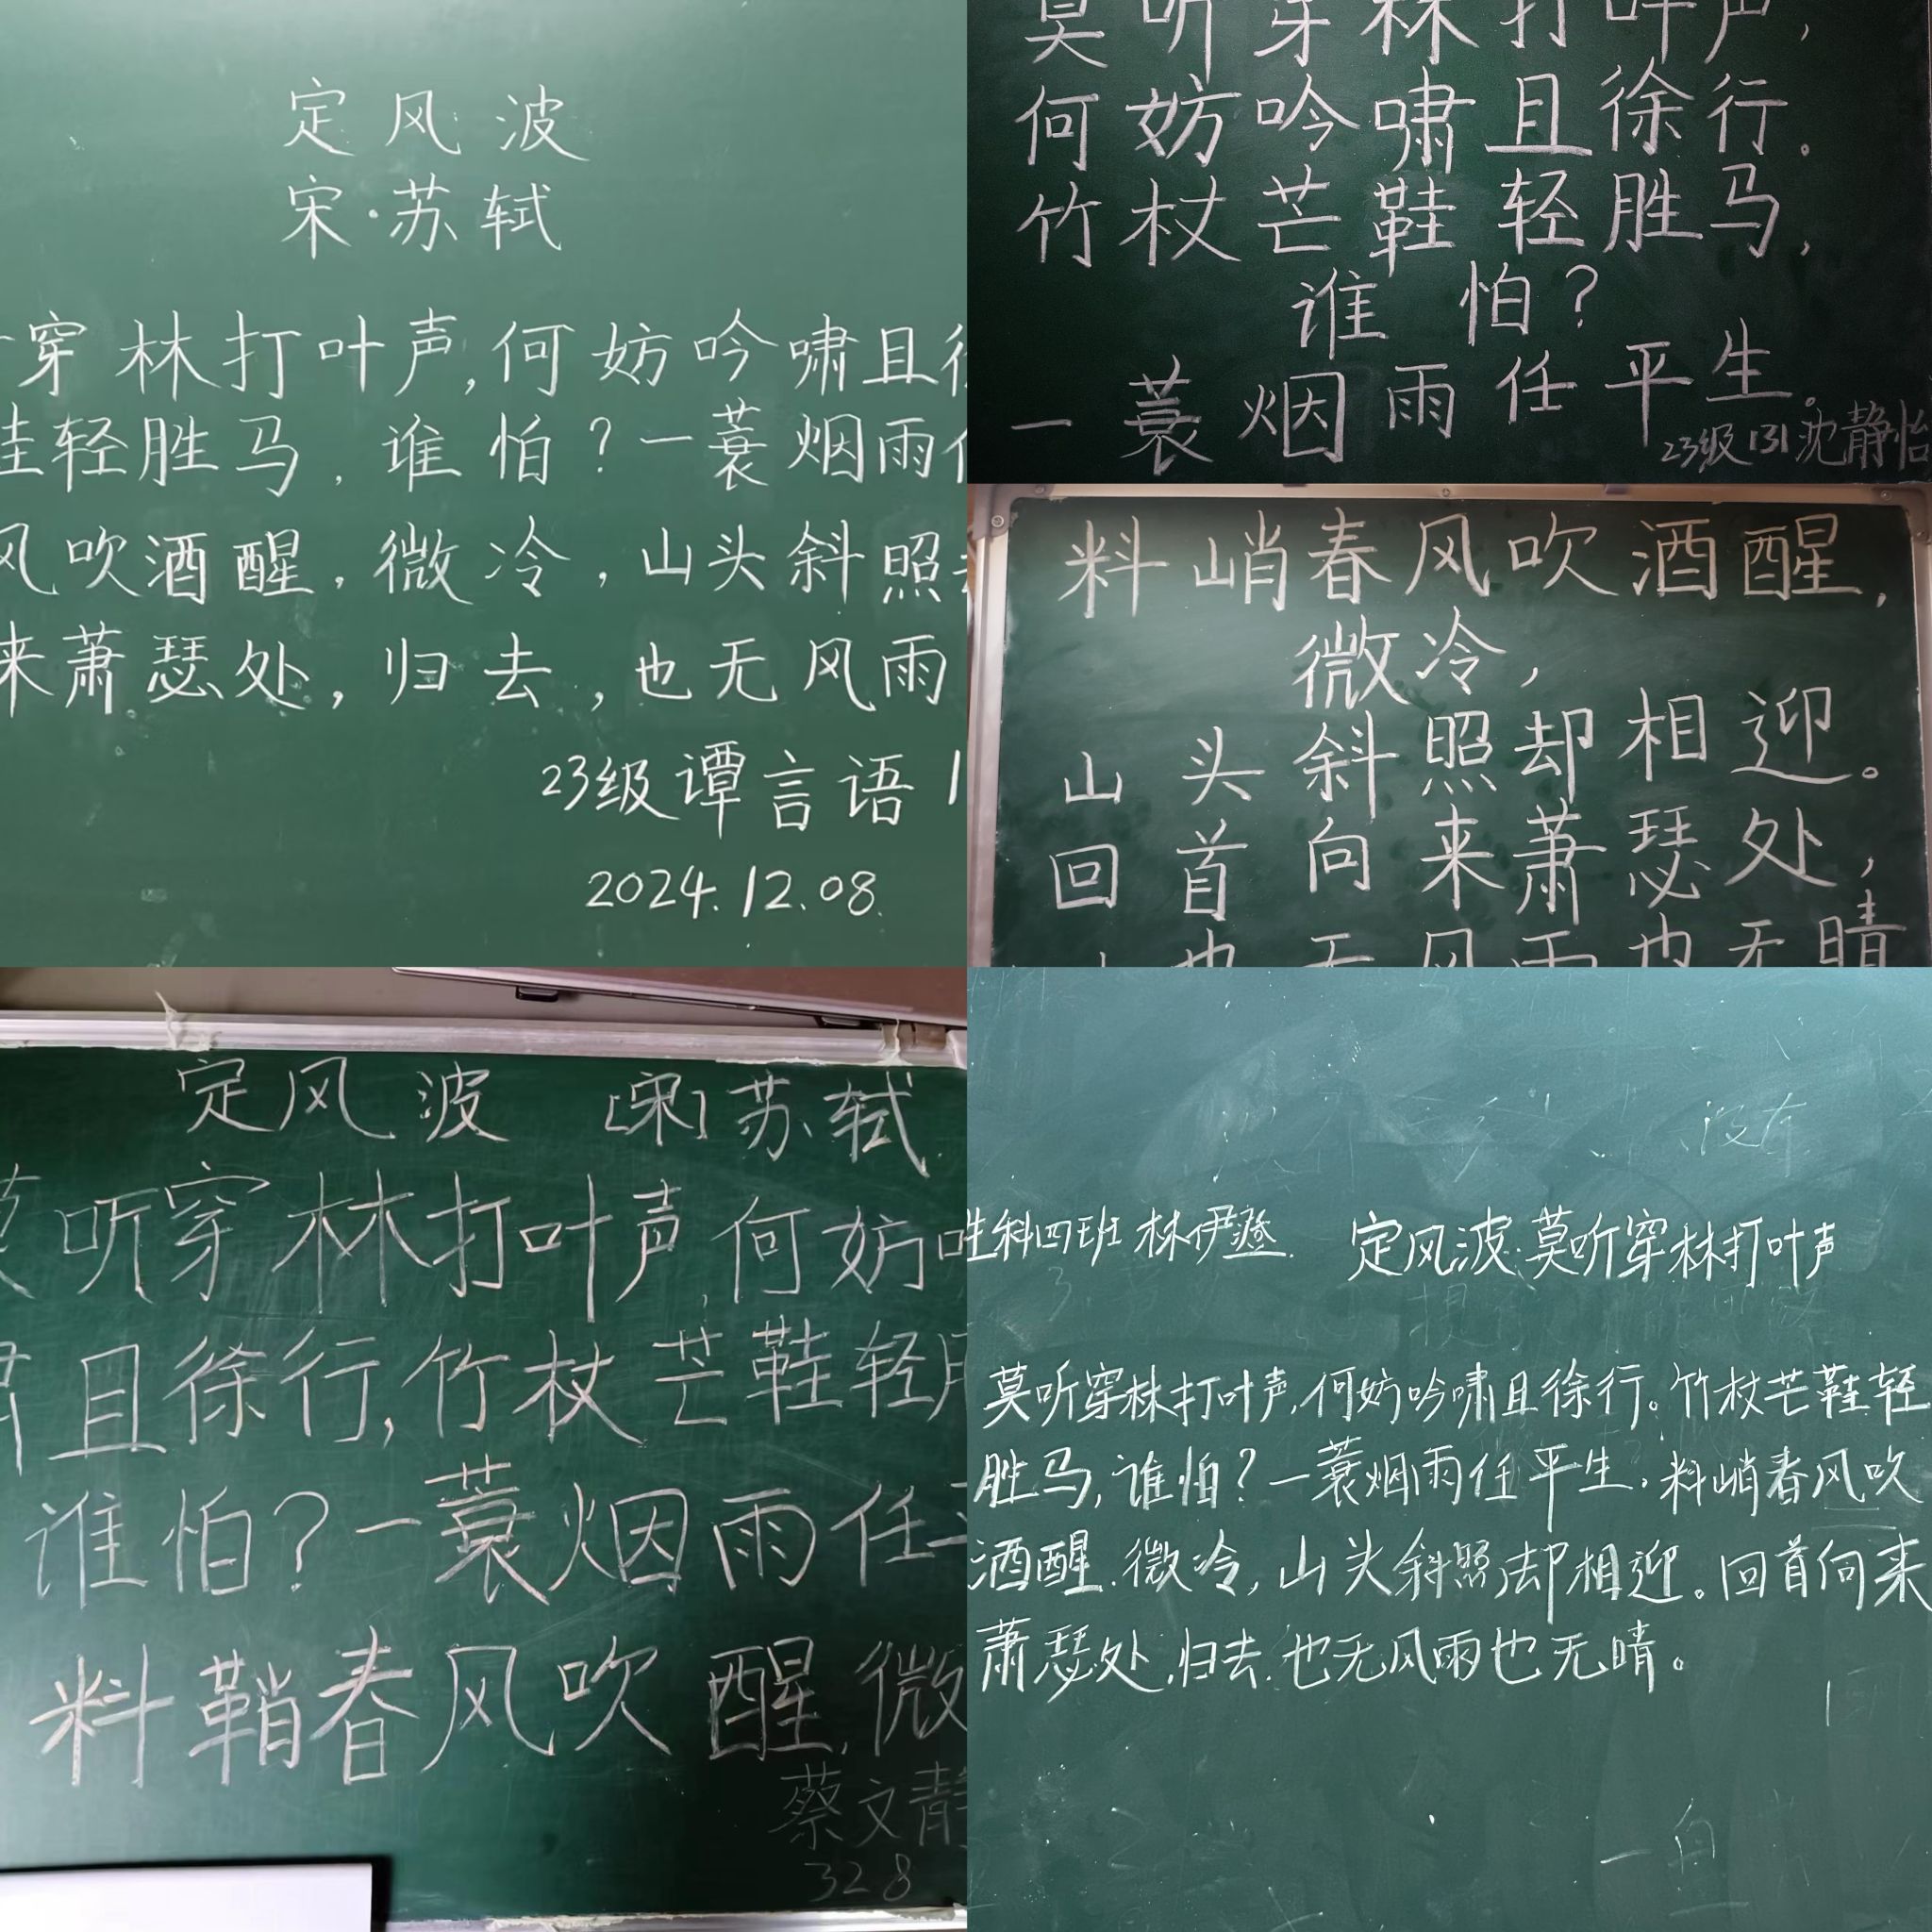 定风波
宋·苏轼
穿林打叶声,何妨吟啸且
轻胜马,谁怕?一蓑烟雨
风吹酒醒,微冷,山头斜照
来萧瑟处,归去,也无风雨
23级谭言语1
2024.12.08.
莫听穿林打叶声,
何妨吟啸且徐行。
竹杖芒鞋轻胜马,
谁怕?
一蓑烟雨任平生。
23级131沈静怡
料峭春风吹酒醒,
微冷,
山头斜照却相迎。
回首向来萧瑟处,
也无风雨也无晴
定风波 [宋]苏轼
莫听穿林打叶声,何妨
且徐行,竹杖芒鞋轻
谁怕?一蓑烟雨任
料鞘春风吹醒,微
蔡文静
328
生科四班 林伊 定风波·莫听穿林打叶声
莫听穿林打叶声,何妨吟啸且徐行。竹杖芒鞋轻
胜马,谁怕?一蓑烟雨任平生,料峭春风吹
酒醒.微冷,山头斜照却相迎。回首向来
萧瑟处,归去.也无风雨也无晴。